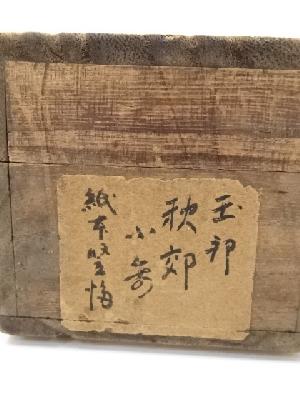 玉邨
秋郊
小禽
紙本竪幅